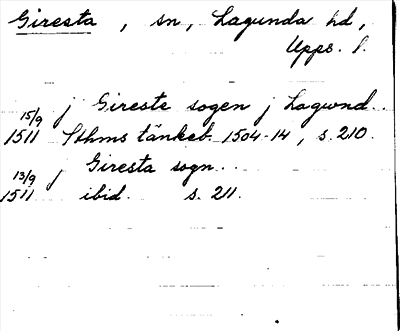 Giresta, sn, Lagunda hd,
Upps. l.
j Gireste sogen j Lagwnd..
15/9
1511 Sthms tänkeb. 1504-14, s. 210.
j Giresta sogn..
13/9
1511 ibid. s. 211.